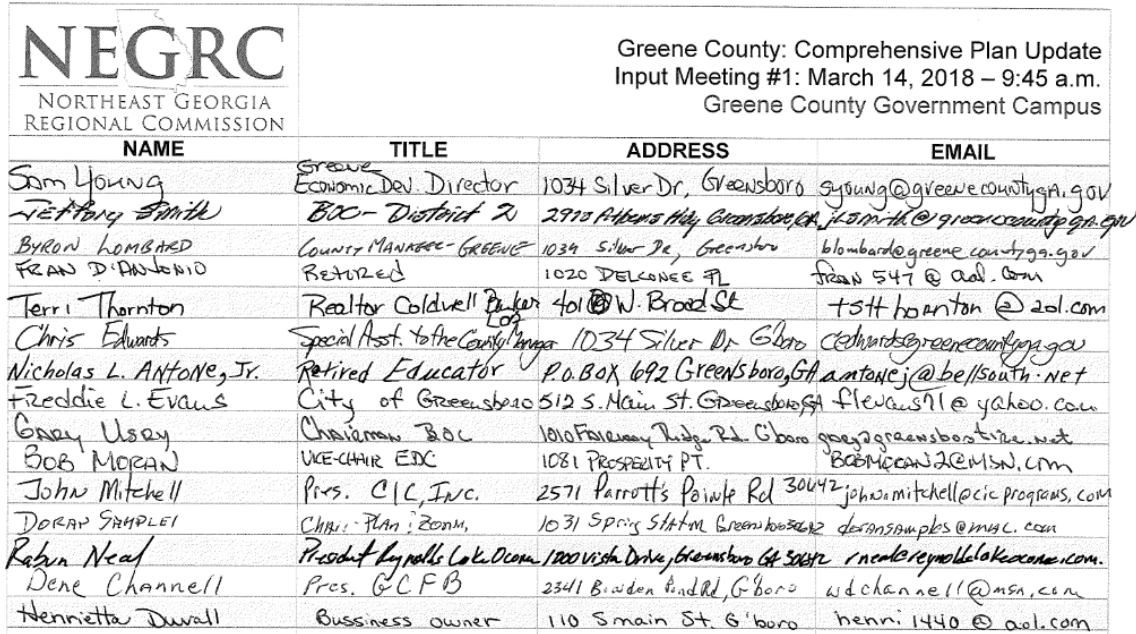 NEGRC
NORTHEAST GEORGIA
REGIONAL COMMISSION
Greene County: Comprehensive Plan Update
Input Meeting #1: March 14, 2018 – 9:45 a.m.
Greene County Government Campus
NAME TITLE ADDRESS EMAIL
Sam Young Greene Economic Dev. Director 1034 Silver Dr, Greensboro syoung@greenecountyga.gov
Jeffery Smith BOC - District 2 2970 Athens Hwy Greensboro, GA jlsmith@greenecountyga.gov
BYRON LOMBARD COUNTY MANAGER - GREENE 1034 Silver Dr, Greensboro blombard@greenecountyga.gov
FRAN D'ANTONIO RETIRED 1020 PL fran547@aol.com
Terri Thornton Realtor Coldwell Banker 401 W. Broad St tstthornton@aol.com
Chris Edwards Special Asst. to the County Manager 1034 Silver Dr G'boro cedwards@greenecountyga.gov
Nicholas L. Antone, Jr. Retired Educator P.O. Box 692 Greensboro, GA antonej@bellsouth.net
Freddie L. Evans City of Greensboro 512 S. Main St. Greensboro, GA flevans71@yahoo.com
Gary Usry Chairman BOC 1010 Ridge Rd. G'boro
BOB MORAN VICE-CHAIR EDC 1081 PROSPERITY PT. BOBMORAN2@MSN.com
John Mitchell Pres. CIC, Inc. 2571 Parrott's Pointe Rd 30642 john.mitchell@cicprograms.com
DORAN Chair - Plan 1031 Spring Station Greensboro 30642
Rabun Neal President Reynolds Lake Oconee 1200 Vista Drive, Greensboro GA 30642 rneal@reynoldslakeoconee.com.
Dene Channell Pres. GCFB 2341 Pond Rd, G'boro wdchannell@msn.com
Henrietta Duvall Bussiness owner 110 S main St. G'boro henri1440@aol.com